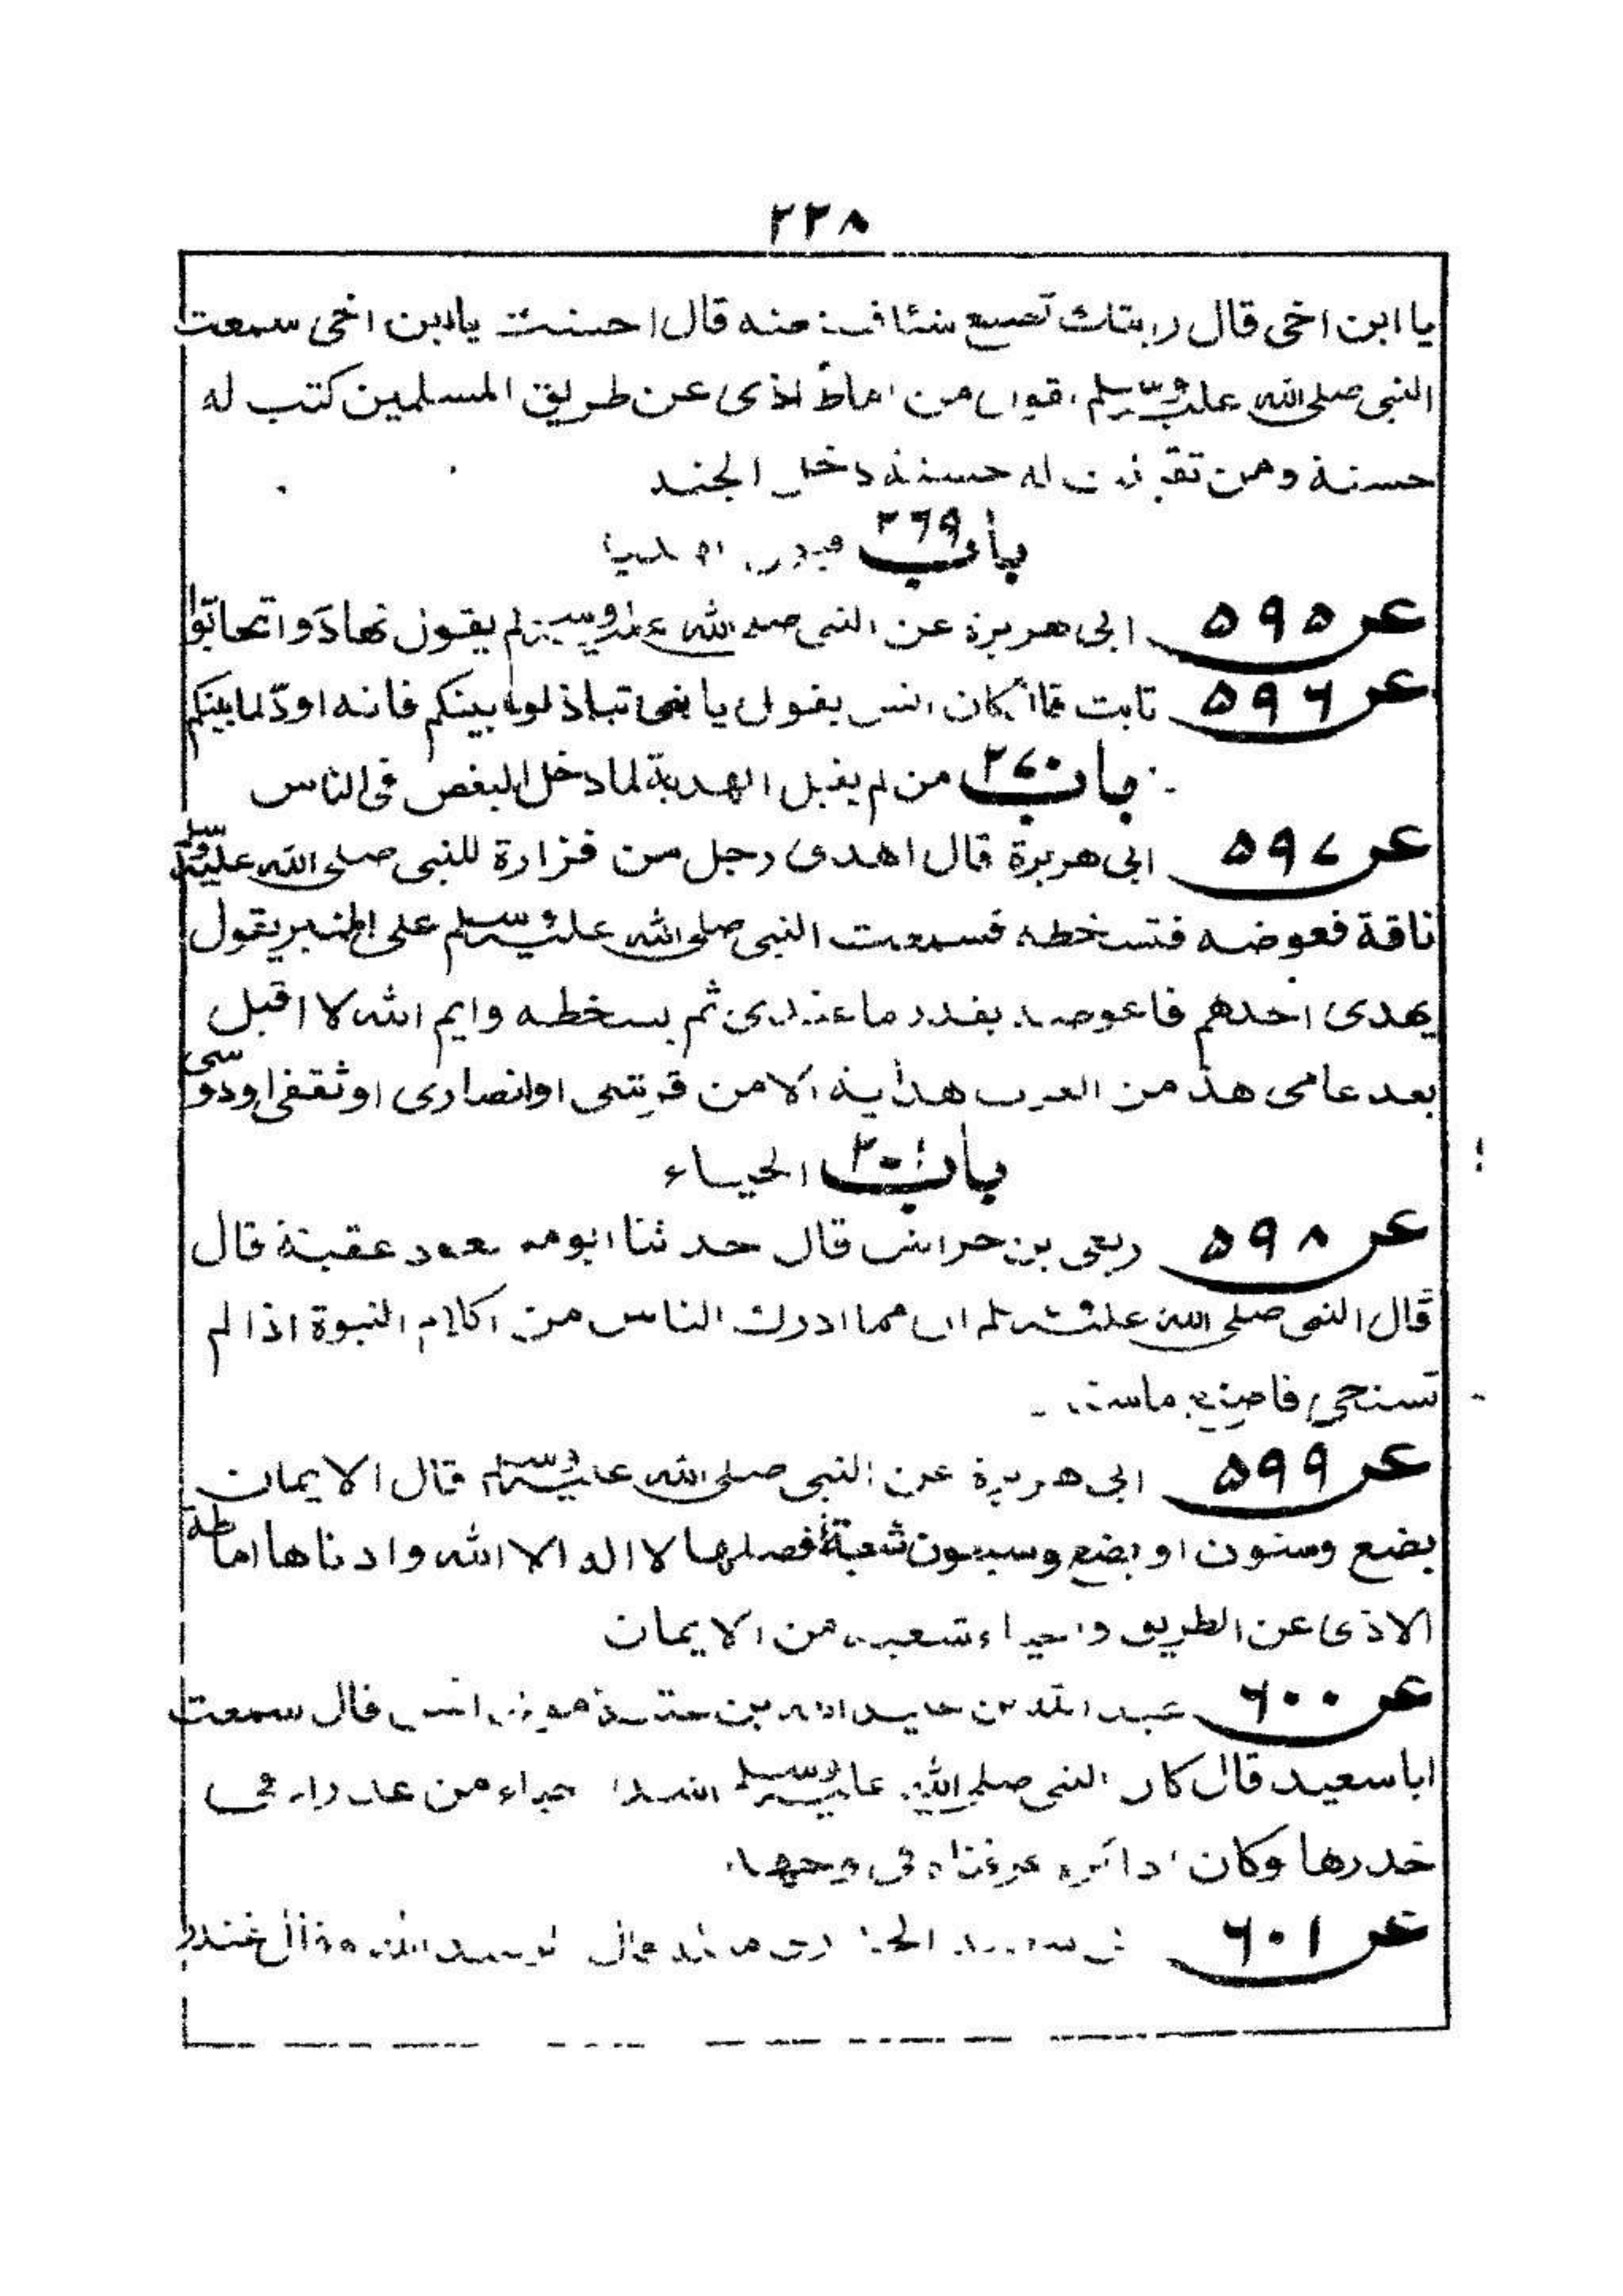 ٢٢٨
يا ابن اخى قال رايتك تصنع شئا فـ منه قال احسنت يا ابن اخى سمعت
النبى صلى الله عليه وسلم يقول من اماط اذى عن طريق المسلمين كتب له
حسنة ومن تقبلت له حسنة دخل الجنة
باب ٢٦٩
عن ٥٩٥ ابى هريرة عن النبى صلى الله عليه وسلم يقول تهادَوا تحابّوا
عن ٥٩٦ ثابت قال كان انس يقول يا بنى تباذلوا بينكم فانه اودّ لما بينكم
باب ٢٧٠ من لم يقبل الهدية لما دخل البغض فى الناس
عن ٥٩٧ ابى هريرة قال اهدى رجل من فزارة للنبى صلى الله عليه وسلم
ناقة فعوضه فتسخطه فسمعت النبى صلى الله عليه وسلم على المنبر يقول
يهدى احدهم فاعوضه بقدر ما عندى ثم يسخطه وايم الله لا اقبل
بعد عامى هذا من العرب هداية الا من قريشى او انصارى او ثقفى او دوسى
باب الحياء
عن ٥٩٨ ربعى بن حراش قال حدثنا ابو مسعود عقبة قال
قال النبى صلى الله عليه وسلم ان مما ادرك الناس من كلام النبوة اذا لم
تستحى فاصنع ما شئت
عن ٥٩٩ ابى هريرة عن النبى صلى الله عليه وسلم قال الايمان
بضع وستون او بضع وسبعون شعبة أفضلها لا اله الا الله وادناها اماطة
الاذى عن الطريق والحياء شعبة من الايمان
عن ٦٠٠ عبد الله بن عبيد الله بن عتبة مولى انس قال سمعت
ابا سعيد قال كان النبى صلى الله عليه وسلم اشد حياء من عذراء فى
خدرها وكان اذا كره عرفناه فى وجهه
عن ٦٠١